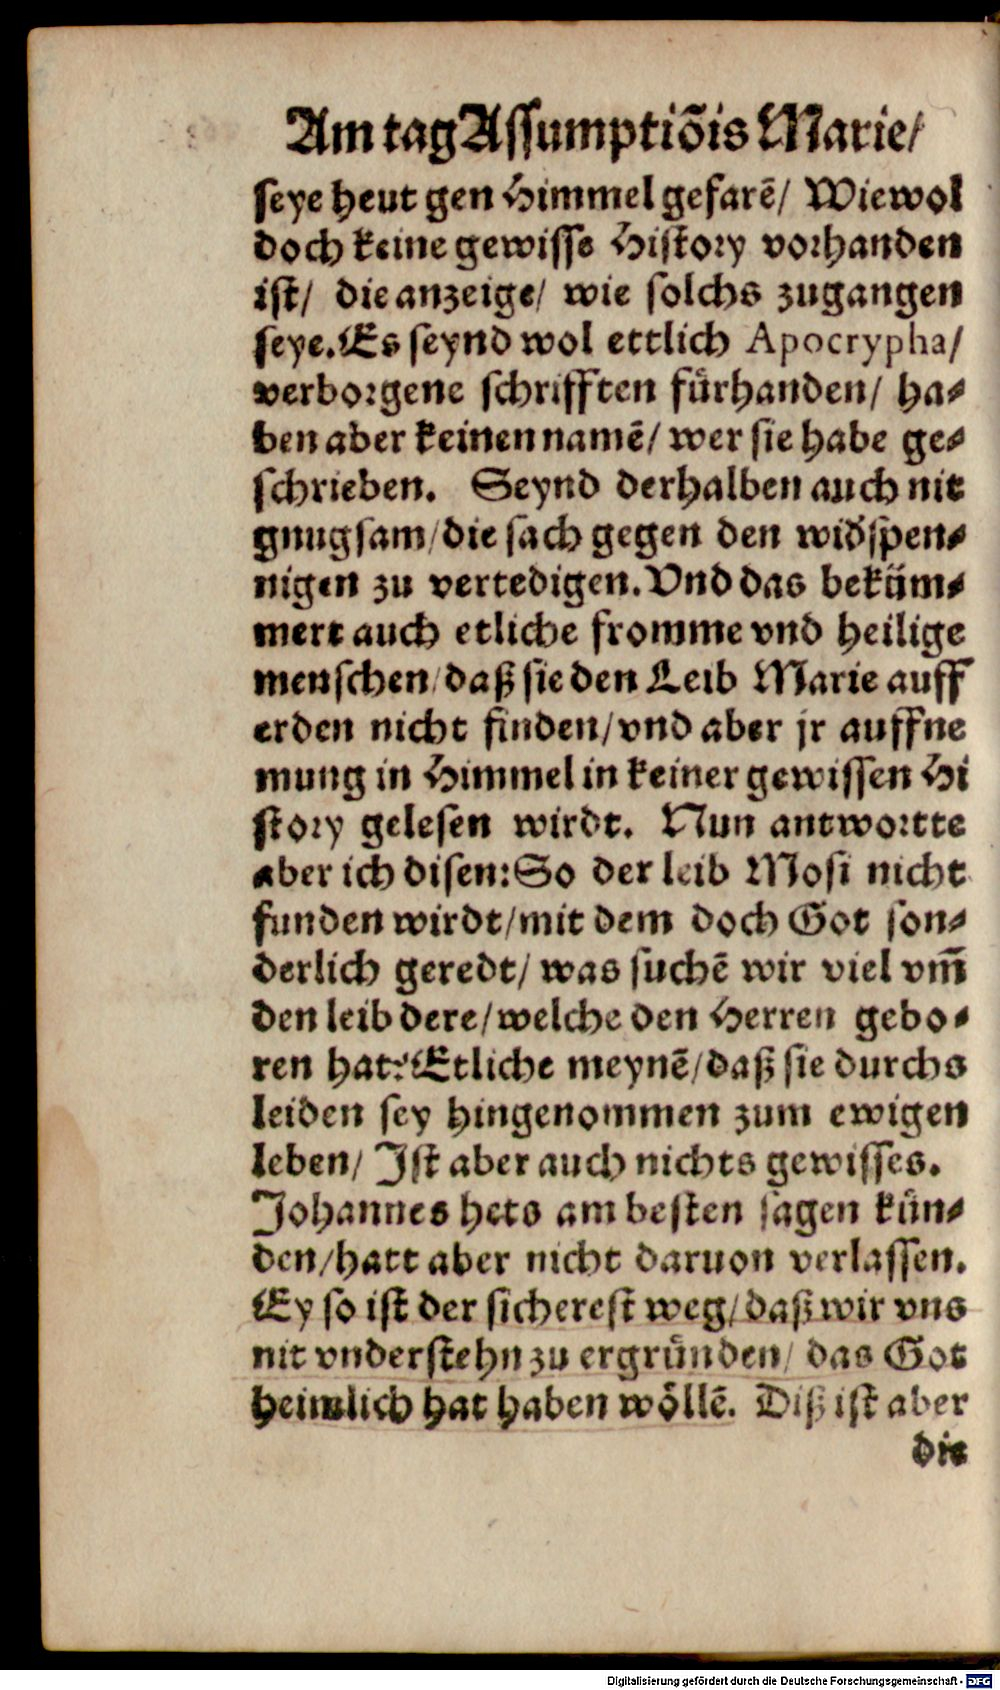 Am tag Assumptiõis Marie/
seye heut gen Himmel gefarẽ/ Wiewol
doch keine gewisse History vorhanden
ist/ die anzeige/ wie solchs zugangen
seye. Es seynd wol ettlich Apocrypha/
verborgene schrifften fürhanden/ ha-
ben aber keinen namẽ/ wer sie habe ge-
schrieben. Seynd derhalben auch nit
gnugsam/ die sach gegen den widspen-
nigen zu vertedigen. Vnd das beküm-
mert auch etliche fromme vnd heilige
menschen/ daß sie den Leib Marie auff
erden nicht finden/ vnd aber jr auffne
mung in Himmel in keiner gewissen Hi
story gelesen wirdt. Nun antwortte
aber ich disen: So der leib Mosi nicht
funden wirdt/ mit dem doch Got son-
derlich geredt/ was suchẽ wir viel vm̃
den leib dere/ welche den Herren gebo-
ren hat? Etliche meynẽ/ daß sie durchs
leiden sey hingenommen zum ewigen
leben/ Ist aber auch nichts gewisses.
Johannes hets am besten sagen kün-
den/ hatt aber nicht daruon verlassen.
Ey so ist der sicherest weg/ daß wir vns
nit vnderstehn zu ergründen/ das Got
heimlich hat haben wöllẽ. Diß ist aber
die
Digitalisierung gefördert durch die Deutsche Forschungsgemeinschaft - DFG